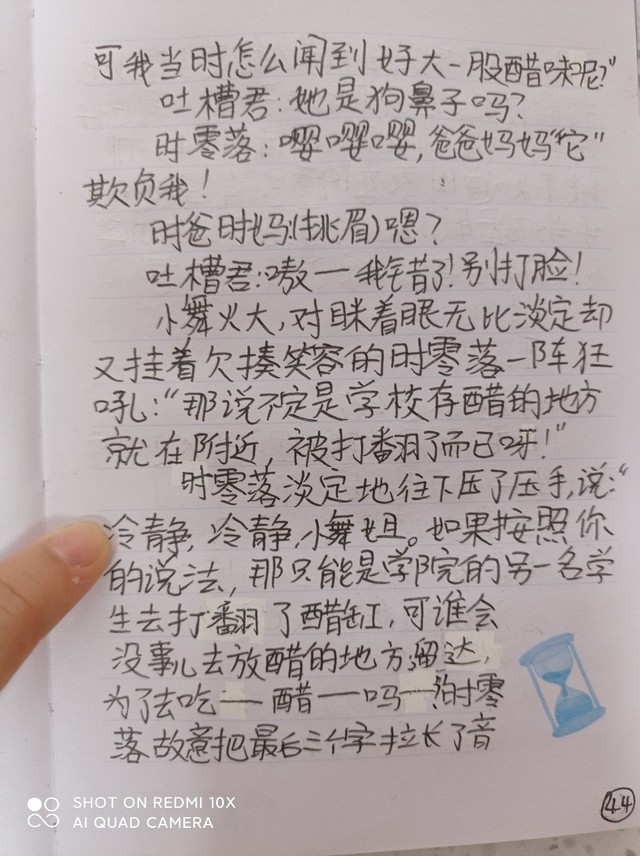 可我当时怎么闻到好大一股醋味呢？”
吐槽君：她是狗鼻子吗？
时零落：嘤嘤嘤，爸爸妈妈“它”
欺负我！
时爸时妈（挑眉）嗯？
吐槽君：嗷一一我错了！别打脸！
小舞火大，对眯着眼无比淡定却
又挂着欠揍笑容的时零落一阵狂
吼：“那说不定是学校存醋的地方
就在附近，被打翻了而已呀！”
时零落淡定地往下压了压手，说：“
冷静，冷静，小舞姐。如果按照你
的说法，那只能是学院的另一名学
生去打翻了醋缸，可谁会
没事儿去放醋的地方溜达，
为了去吃一一醋一一吗一一”时零
落故意把最后三个字拉长了音
44
SHOT ON REDMI 10X
AI QUAD CAMERA